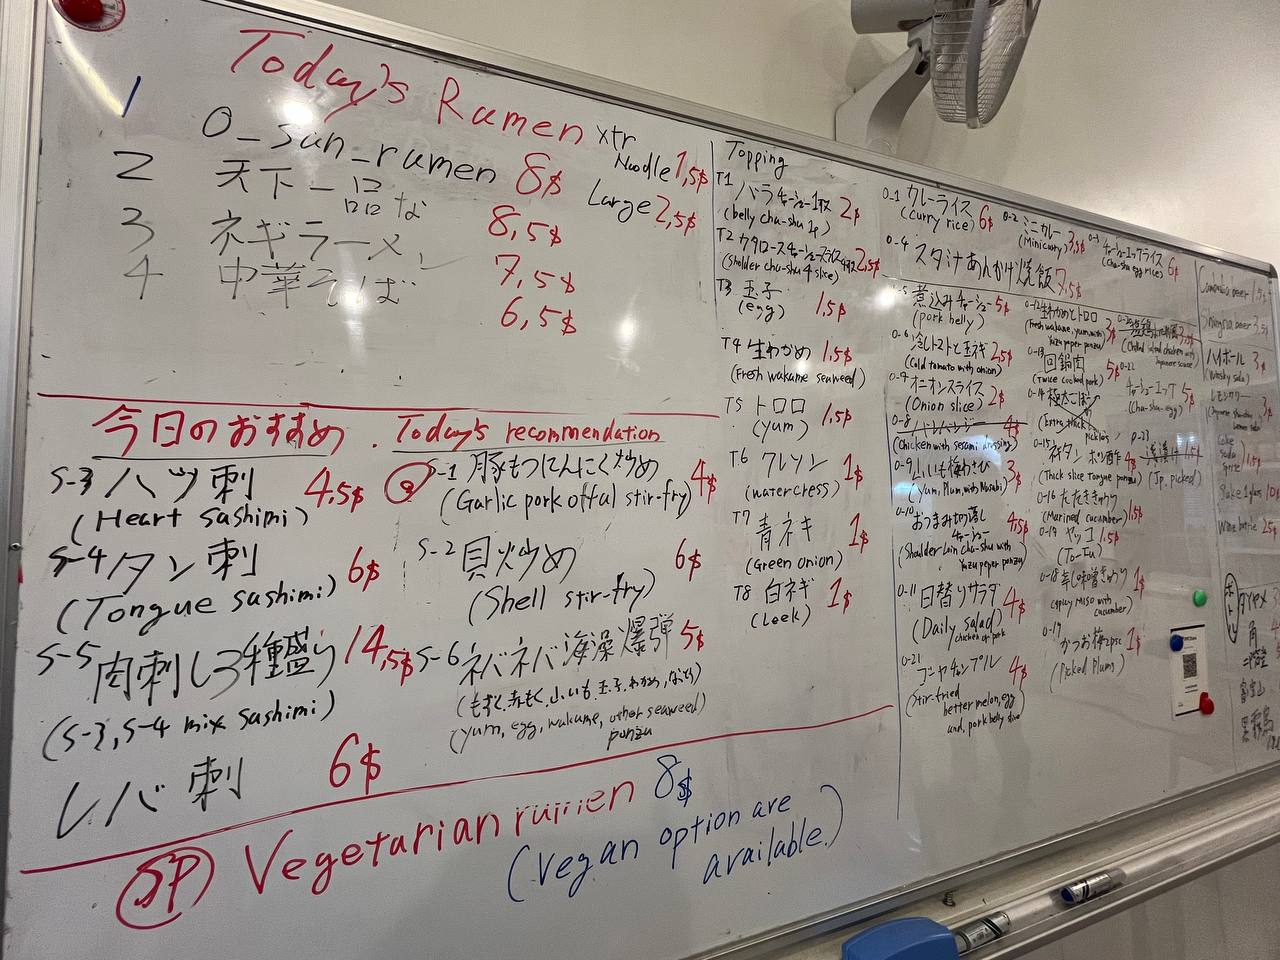 Today's Ramen
1 O_san_ramen 8$
2 天下一品な 8,5$
3 ネギラーメン 7,5$
4 中華そば 6,5$
xtr
Noodle 1,5$
Large 2,5$
今日のおすすめ . Today's recommendation
S-3 ハツ刺 4,5$
(Heart sashimi)
S-4 タン刺 6$
(Tongue sashimi)
S-5 肉刺し3種盛り 14,5$
(S-3, S-4 mix sashimi)
レバ刺 6$
S-1 豚もつにんにく炒め 4$
(Garlic pork offal stir-fry)
S-2 貝炒め 6$
(Shell stir-fry)
S-6 ネバネバ海藻爆弾 5$
(yum, egg, wakame, other seaweed)
ponzu
SP Vegetarian ramen 8$
(vegan option are
available.)
Topping
T1 バラチャーシュー1枚 2$
(belly cha-shu 1p)
T2 2,5$
(Sholder cha-shu 4 slice)
T3 玉子 1,5$
(egg)
T4 生わかめ 1,5$
(Fresh wakame seaweed)
T5 トロロ 1,5$
(yum)
T6 クレソン 1$
(watercress)
T7 青ネギ 1$
(Green onion)
T8 白ネギ 1$
(Leek)
0-1 カレーライス 6$
(curry rice)
0-2 ミニカレー 3,5$
(Minicurry)
0-3 チャーシューエッグライス 6$
(Cha-shu egg rice)
0-4 スタ汁あんかけ焼飯 7,5$
煮込みチャーシュー 5$
(pork belly)
0-6 冷しトマトと玉ネギ 2,5$
(Cold tomato with onion)
オニオンスライス 2$
(Onion slice)
0-8 バンバンジー 4$
(Chicken with sesami dressing)
0-9 3$
(Yum, Plum, with Wasabi)
0-10 おつまみ切落し
チャーシュー 4,5$
(Shoulder loin cha-shu with
Yuzu peper ponzu)
0-11 日替りサラダ 4$
(Daily salad)
chicken or pork
0-21 ゴーヤチャンプル 4$
(Stir-fried
better melon, egg
and, pork belly
0-12 生わかめとトロロ 3$
(Fresh wakame, yum, with
Yuzu peper ponzu)
0-13 回鍋肉 5$
(Twice cooked pork)
0-14 極太ごぼう
(Extra thick
0-15 ネギタンポン酢 4$
(Thick slice Tongue ponzu)
0-16 たたききゅうり 1,5$
(Marined cucumber)
ヤッコ 1,5$
(To-Fu)
0-18 辛し味噌きゅうり 1$
(spicy Miso with
cucumber)
かつお梅2psc 1$
(Picked Plum)
チャーシューエッグ 5$
(Cha-shu-egg)
浅漬け 1,5$
(Jp, picked)
ハイボール 3$